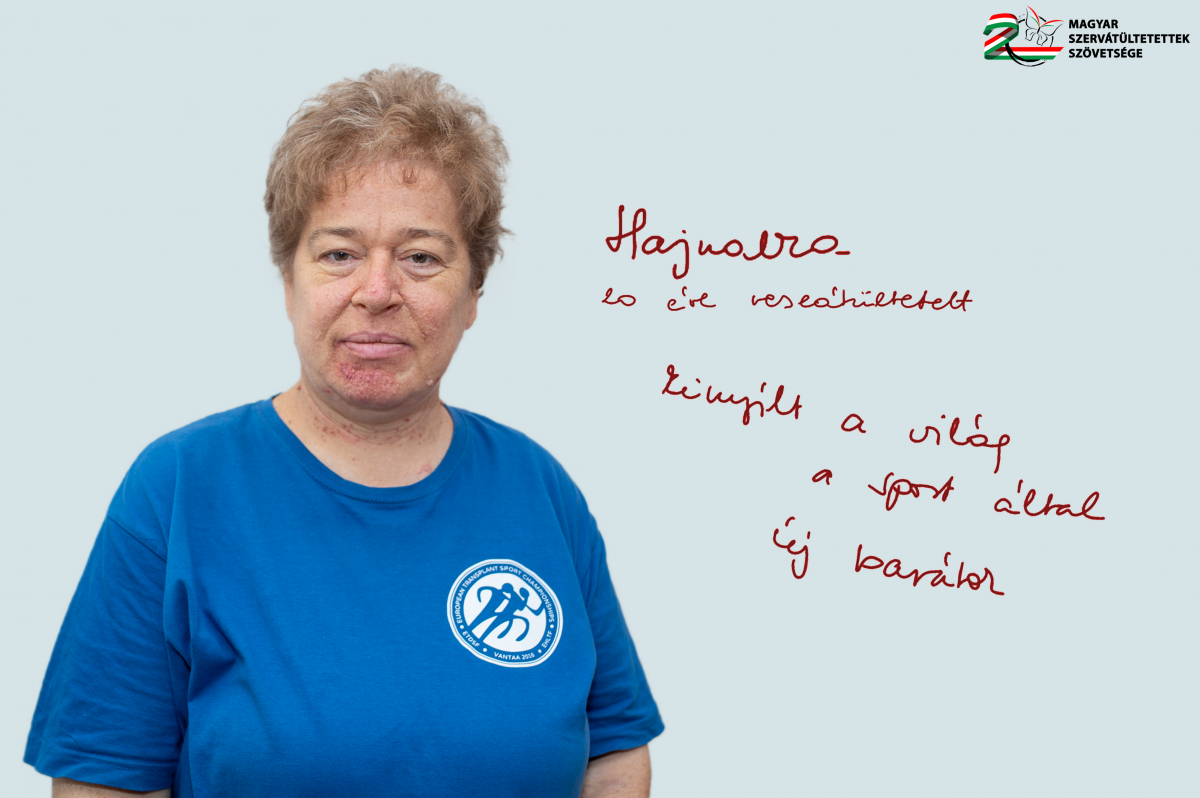 MAGYAR
SZERVÁTÜLTETETTEK
SZÖVETSÉGE
Hajnalka
20 éve veseátültetett
Kinyílt a világ
a sport által
Új barátok
EUROPEAN TRANSPLANT SPORT CHAMPIONSHIPS
ETDSF • VANTAA 2016 • EHLTF